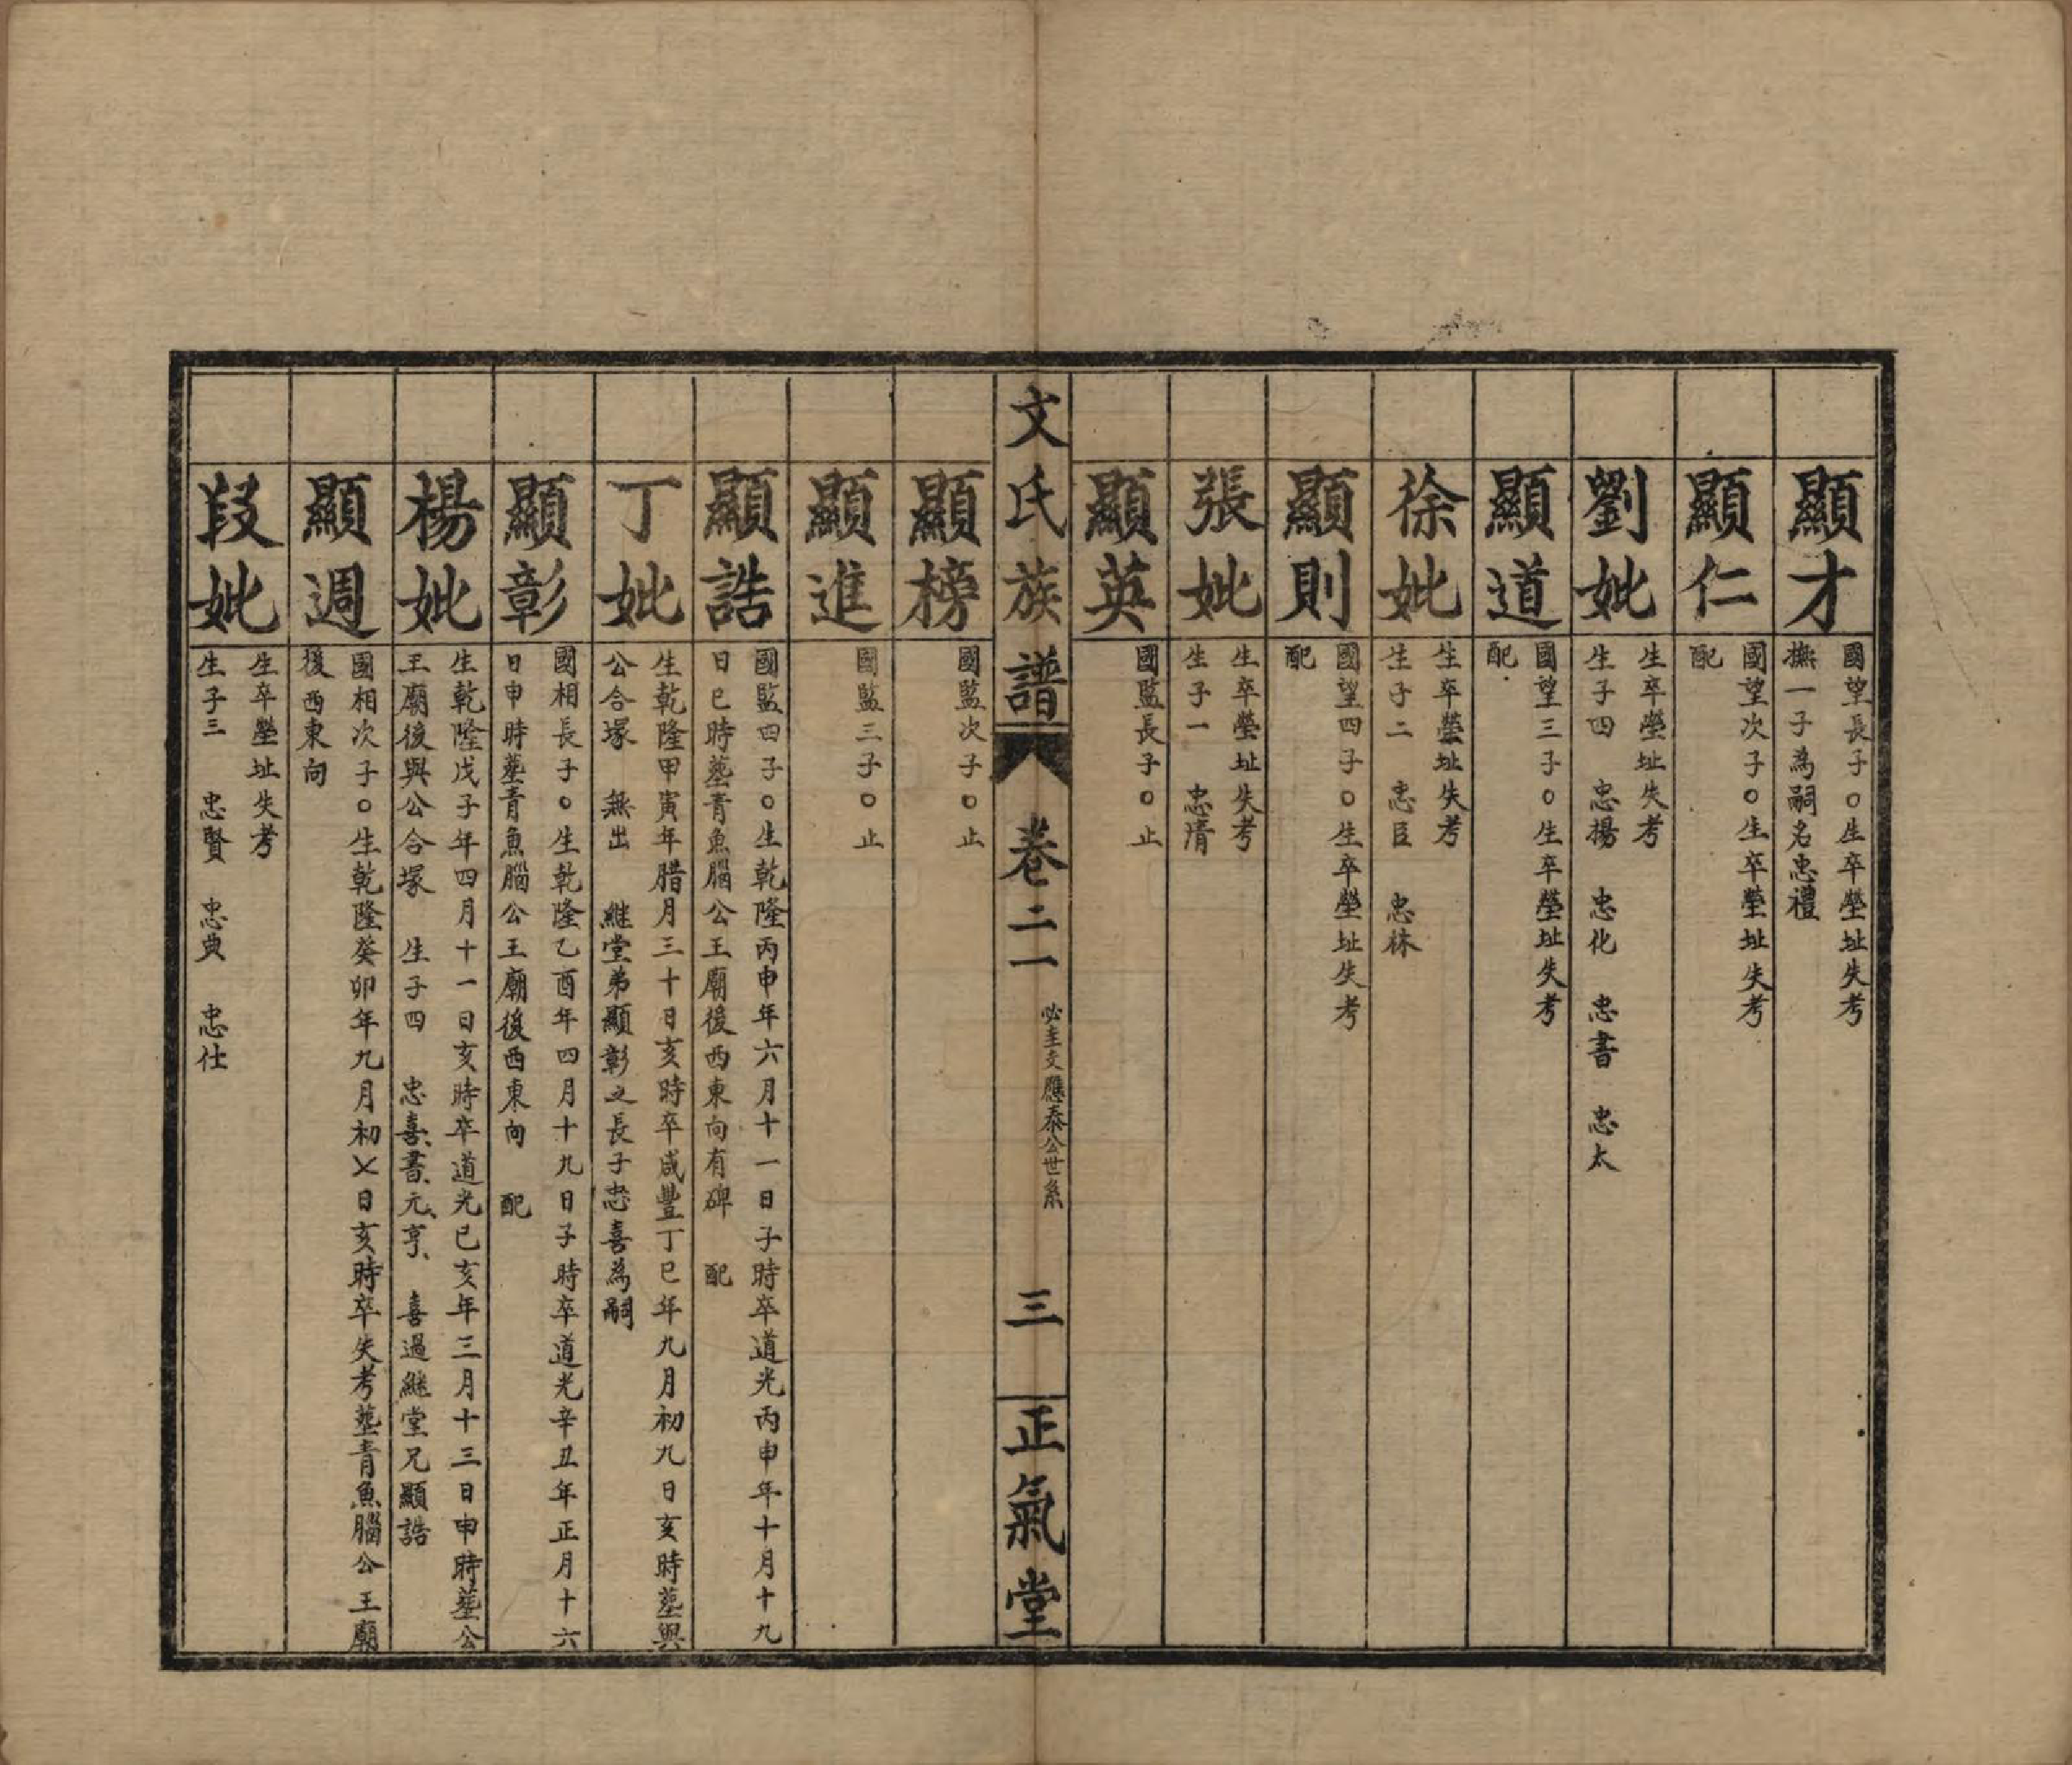 顯才
國望長子○生卒塋址失考
撫一子為嗣名忠禮
顯仁
國望次子○生卒塋址失考
配
劉妣
生卒塋址失考
生子四 忠揚 忠化 忠書 忠太
顯道
國望三子○生卒塋址失考
配
徐妣
生卒塋址失考
生子二 忠臣 忠林
顯則
國望四子○生卒塋址失考
配
張妣
生卒塋址失考
生子一 忠清
顯英
國監長子○止
文氏族譜 卷二一 必圭文應泰公世系 三 正氣堂
顯榜
國監次子○止
顯進
國監三子○止
顯誥
國監四子○生乾隆丙申年六月十一日子時卒道光丙申年十月十九
日巳時塟青魚腦公王廟後西東向有碑 配
丁妣
生乾隆甲寅年腊月三十日亥時卒咸豐丁巳年九月初九日亥時塟與
公合塚 無出 継堂弟顯彰之長子忠喜為嗣
顯彰
國相長子○生乾隆乙酉年四月十九日子時卒道光辛丑年正月十六
日申時塟青魚腦公王廟後西東向 配
楊妣
生乾隆戊子年四月十一日亥時卒道光巳亥年三月十三日申時塟公
王廟後與公合塚 生子四 忠喜、書、元、亨、 喜過継堂兄顯誥
顯週
國相次子○生乾隆癸卯年九月初〤日亥時卒失考塟青魚腦公王廟
後西東向
段妣
生卒塋址失考
生子三 忠賢 忠典 忠仕